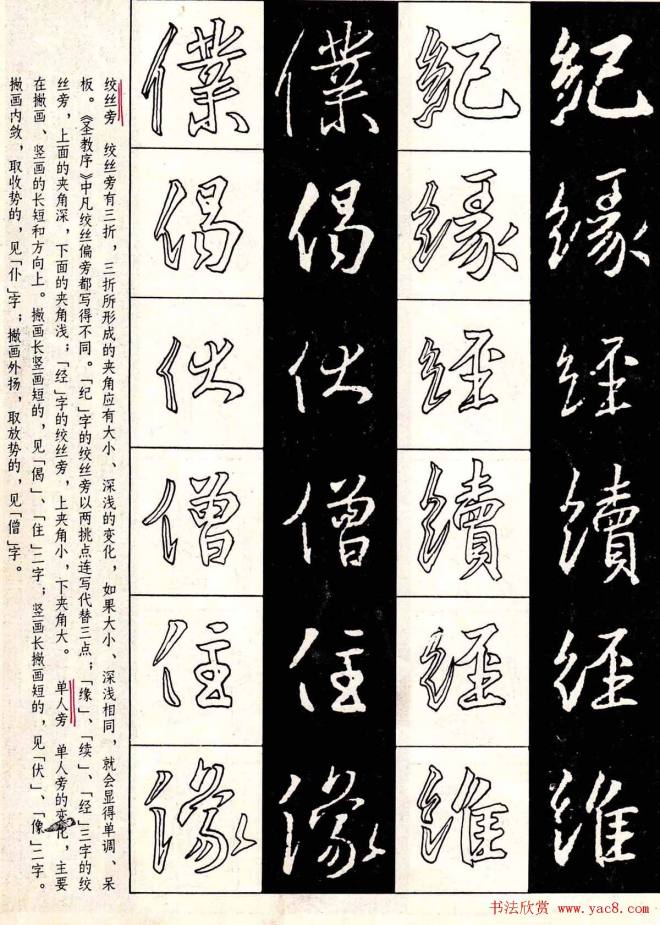 紀緣經續經維
紀緣經續經維
僕偈伏僧住像
僕偈伏僧住像
绞丝旁　绞丝旁有三折，三折所形成的夹角应有大小、深浅的变化，如果大小、深浅相同，就会显得单调、呆
板。《圣教序》中凡绞丝偏旁都写得不同。「纪」字的绞丝旁以两挑点连写代替三点；「缘」、「续」、「经」三字的绞
丝旁，上面的夹角深，下面的夹角浅；「经」字的绞丝旁，上夹角小，下夹角大。　单人旁　单人旁的变化，主要
在撇画、竖画的长短和方向上。撇画长竖画短的，见「偈」、「住」二字；竖画长撇画短的，见「伏」、「像」二字。
撇画内敛，取收势的，见「仆」字；撇画外扬，取放势的，见「僧」字。
书法欣赏 www.yac8.com